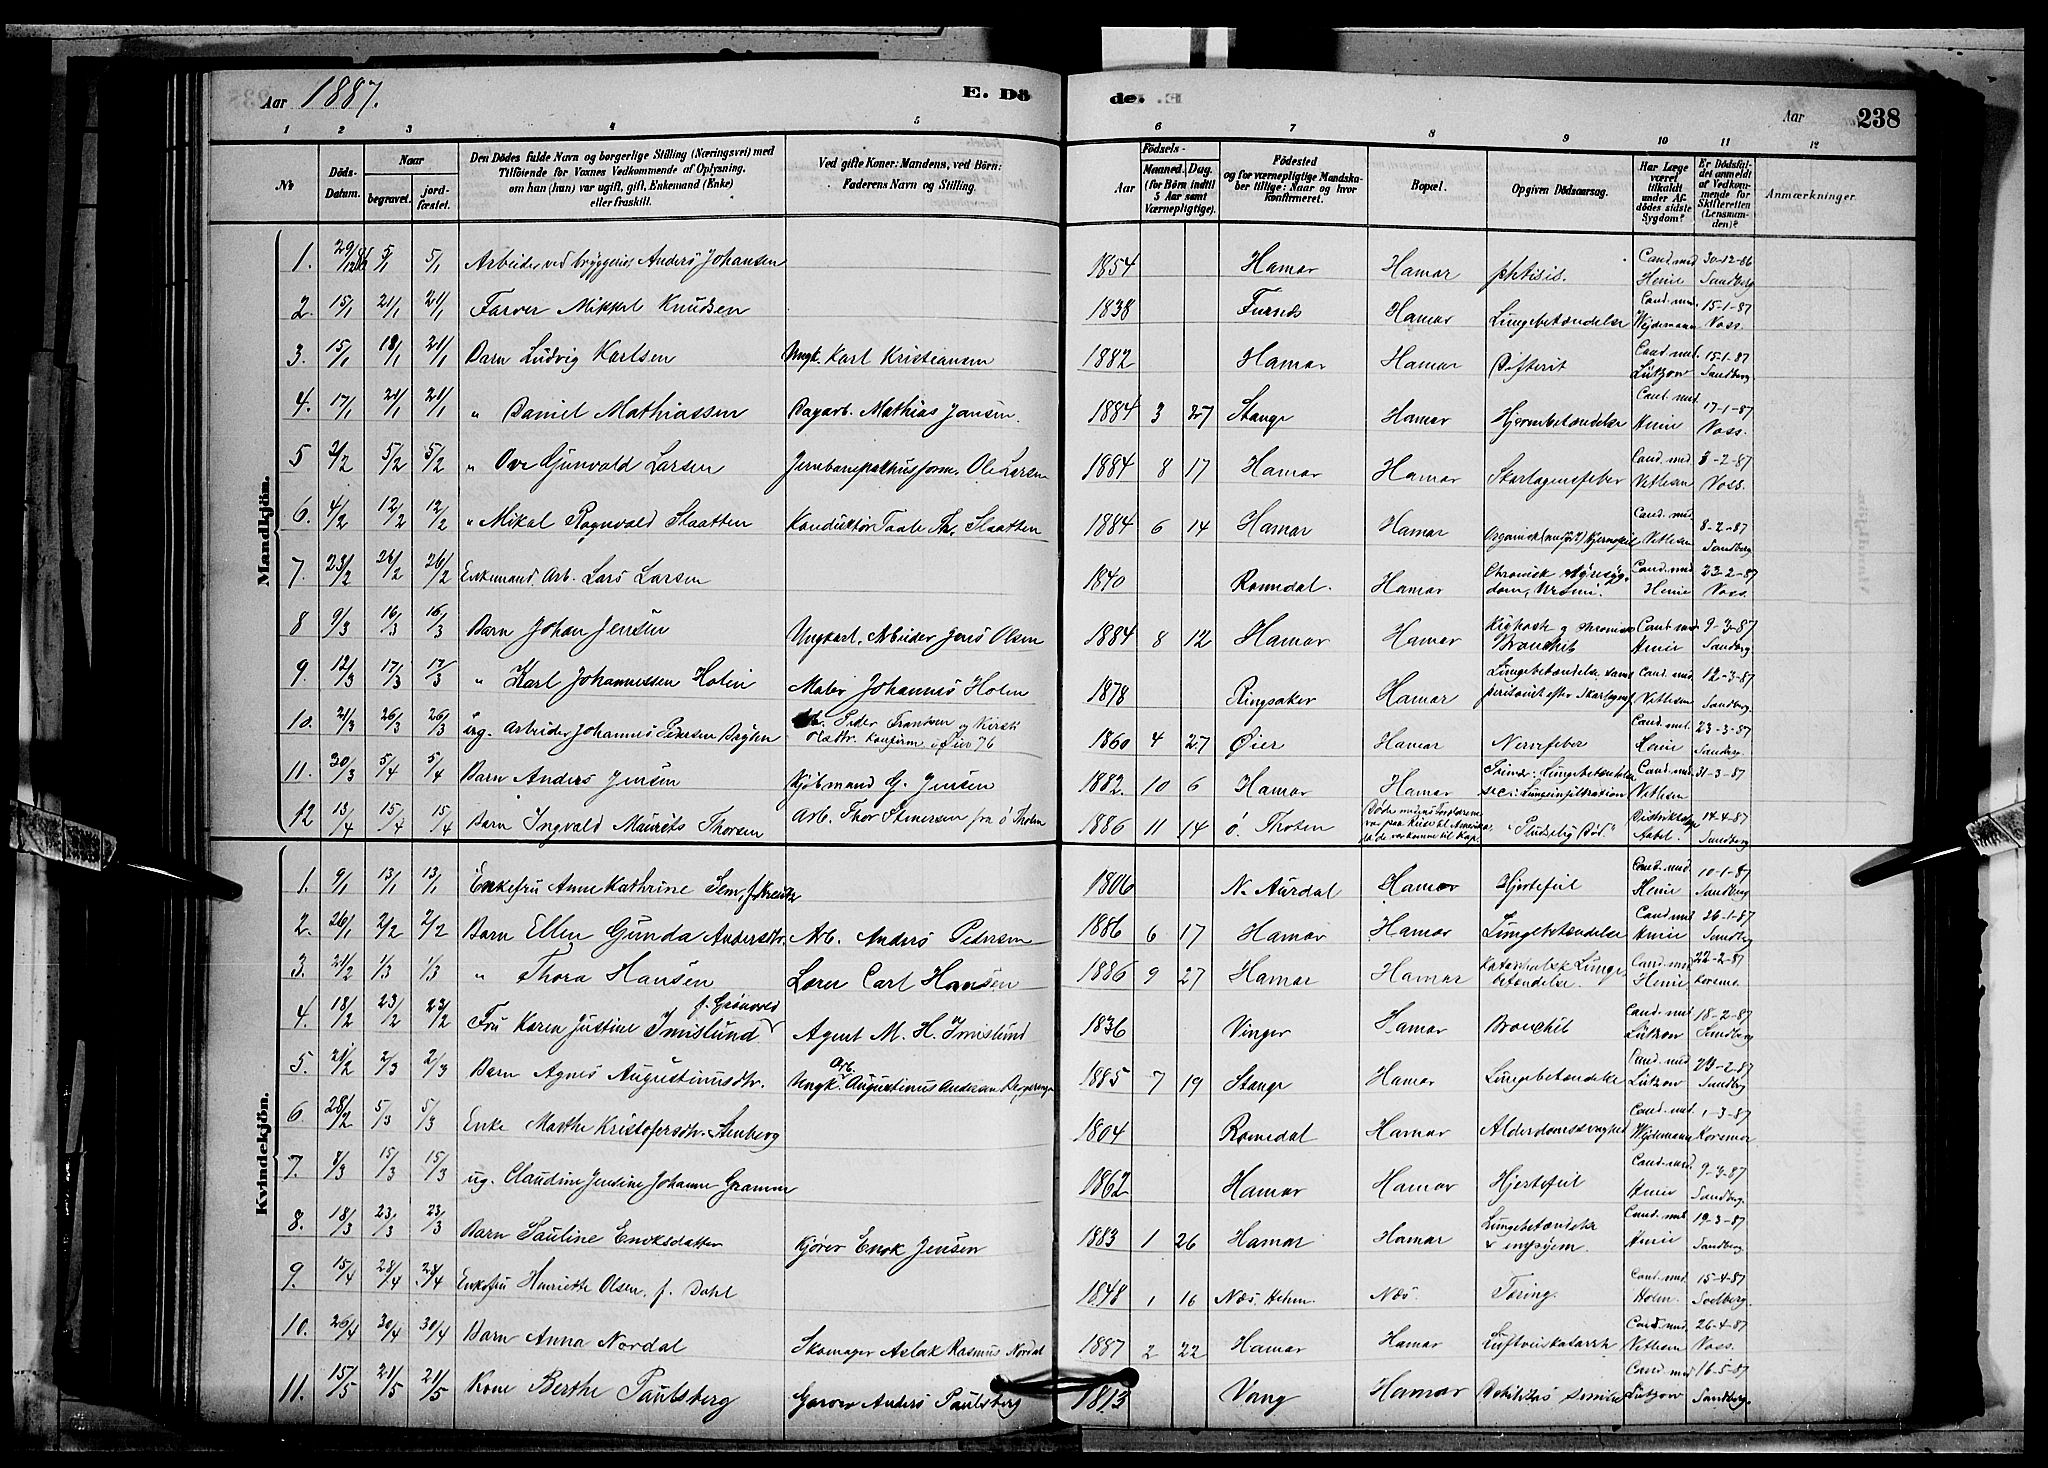 Aar 1887. E. Dö de. Aar 238
1 2 3 4 5 6 7 8 9 10 11 12
No
Döds-Datum.
Naar
begravet.
jord-fæstet.
Den Dödes fulde Navn og borgerlige Stilling (Næringsvei) med
Tilföiende for Voxnes Vedkommende af Oplysning,
om han (hun) var ugift, gift, Enkemand (Enke)
eller fraskilt.
Ved gifte Koner: Mandens, ved Börn:
Faderens Navn og Stilling.
Födsels-
Aar
Maaned. Dag.
(for Börn indtil
5 Aar samt
Værnepligtige).
Födested
og for værnepligtige Mandska-
ber tillige: Naar og hvor
konfirmeret.
Bopæl.
Opgiven Dödsaarsag.
Har Læge
været
tilkaldt
under Af-
dödes sidste
Sygdom?
Er Dödsfal-
det anmeldt
af Vedkom-
mende for
Skifteretten
(Lensman-
den)?
Anmærkninger.
Mandkjön.
1. 29/12 86 5/1 5/1 Arbeider ved bryggeriet Anders Johansen 1854 Hamar Hamar phtisis. Cand. med Henie 30-12-86 Sandberg
2. 15/1 21/1 21/1 Farver Mikkel Knudsen 1838 Furnæs Hamar Lungebetændelse Cand. med. Wejdemann 15-1-87 Voss.
3. 15/1 18/1 21/1 Barn Ludvig Karlsen Ungk. Karl Kristiansen 1882 Hamar Hamar Difterit Cand. med. Lützow 15-1-87 Sandberg.
4. 17/1 21/1 21/1 " Daniel Mathiassen Dagarb. Mathias Jansen. 1884 3 27 Stange Hamar Hjernebetændelse Cand. med. Henie 17-1-87 Voss.
5 2/2 5/2 5/2 " Ove Gunvald Larsen Jernbanepakhusform. Ole Larsen 1884 8 17 Hamar Hamar Skarlagensfeber Cand. med Vethesen 3-2-87 Voss.
6. 4/2 12/2 12/2 " Mikal Ragnvald Slaatten Konduktør Taale Th. Slaatten 1884 6 14 Hamar Hamar Organisk (medfødt) Hjertefeil Cand. med. Vethesen 8-2-87 Sandberg
7. 23/2 26/2 26/2 Enkemand Arb. Lars Larsen 1840 Romedal. Hamar Chronisk Nyresyg-dom, Uræmi. Cand. med Henie 23-2-87 Voss.
8 9/3 16/3 16/3 Barn Johan Jensen Ungkarl. Arbeider Jens Olsen 1884 8 12 Hamar Hamar Kighoste og chronisk Bronchit Cand. med Henie 9-3-87 Sandberg
9. 12/3 17/3 17/3 " Karl Johannessen Holen Maler Johannes Holen 1878 Ringsaker Hamar Lungebetændelse samt peritonit efter Skarlagensf. Cand. med. Vethesen 12-3-87 Sandberg.
10. 21/3 26/3 26/3 ug. Arbeider Johannes Pedersen Arb. Peder Frandsen og Kirsti Olsdtr. Konfirm. i Øier 76 1860 4 27 Øier Hamar Nervefeber Cand. med. Henie 23-3-87 Sandberg.
11. 30/3 5/4 5/4 Barn Anders Jensen Kjøbmand G. Jensen 1882. 10 6 Hamar Hamar Primær: Lungebetændelse sec: Lungeinfiltration Cand. med. Vethesen 31-3-87
12 13/4 15/4 15/4 Barn Ingvald Maurits Thorsen Arb. Thor Stenersen fra Ø Thoten 1886 11 14 Ø. Thoten Døde medens Forældrene var paa Reise til Amerika, "Pludselig Død" Distriktslæge Aabel. 14-4-87 Sandberg
Kvindekjön.
1. 9/1 13/1 13/1 Enkefru Anne Kathrine Sem, f. Kreutz 1806 N. Aurdal Hamar Hjertefeil Cand. med Henie 10-1-87 Sandberg
2. 26/1 2/2 2/2 Barn Ellen Gunda Andersdtr. Arb. Anders Pedersen 1886 6 17 Hamar Hamar Lungebetændelse Cand. med Henie 26-1-87 Sandberg
3. 21/2 1/3 1/3 " Thora Hansen Lærer Carl Hansen 1886 9 27 Hamar Hamar Katarrhalsk Lunge-betændelse. Cand. med. Henie 22-2-87 Korsmo
4. 18/2 23/2 23/2 Fru Karen Justine Imislund f. Grønvold Agent M. H. Imislund 1836 Vinger Hamar Bronchit Cand. med Lützow 18-2-87 Sandberg
5. 21/2 2/3 2/3 Barn Agnes Augustinusdtr. Ungk. Arb. Augustinus Andersen 1885 7 19 Stange Hamar Lungebetændelse Cand. med Lützow 24-2-87 Sandberg
6. 28/2 5/3 5/3 Enke Marthe Kristofersdtr. Stenberg 1804 Romedal Hamar Alderdomssvaghed Cand. med. Wejdemann 1-3-87 Korsmo
7. 8/3 15/3 15/3 ug. Claudine Jensine Johanne Gramm 1862 Hamar Hamar Hjertefeil Cand. med. Henie 9-3-87 Sandberg.
8. 18/3 23/3 23/3 Barn Pauline Enoksdatter Kjører Enok Jensen 1883 1 26 Hamar Hamar Lungebetændelse & empyem. Cand. med Henie 19-3-87 Sandberg.
9. 15/4 23/4 23/4 Enkefru Henriette Olsen, f. Dahl 1848 1 16 Næs. Hedm. Næs. Tæring. Cand. med. Holm. 15-4-87 Solberg.
10. 26/4 30/4 30/4 Barn Anna Nordal Skomager Aslak Rasmus Nordal 1887 2 22 Hamar Hamar Luftveiskatarrh Cand. med. Vethesen 26-4-87 Voss.
11. 15/5 21/5 21/5 Kone Berthe Paulsberg Garver Anders Paulsberg 1813 Vang Hamar Debilitas senilis Cand. med Lützow 16-5-87 Sandberg.